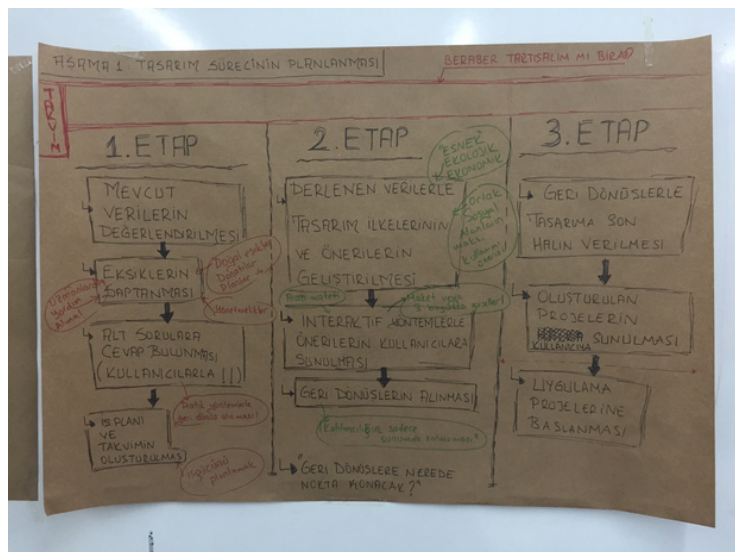 AŞAMA 1: TASARIM SÜRECİNİN PLANLANMASI
BERABER TARTIŞALIM MI BİRAZ?
TAKVİM
1. ETAP
MEVCUT
VERİLERİN
DEĞERLENDİRİLMESİ
EKSİKLERİN
SAPTANMASI
Doğal eşikler
Donatılar
Uzmanlardan
yardım
alma!
ALT SORULARA
CEVAP BULUNMASI
(KULLANICILARLA!!)
İŞ PLANI
VE
TAKVİMİN
OLUŞTURULMASI
işgücünü
planlamak
2. ETAP
"ESNEK
EKOLOJİK
EKONOMİK
DERLENEN VERİLERLE
TASARIM İLKELERİNİN
VE ÖNERİLERİN
GELİŞTİRİLMESİ
Ortak
Sosyal
alanların
İNTERAKTİF YÖNTEMLERLE
ÖNERİLERİN KULLANICILARA
SUNULMASI
GERİ DÖNÜŞLERİN ALINMASI
Katılımcılığın sadece
sunumda kalmaması"
"GERİ DÖNÜŞLERE NEREDE
NOKTA KONACAK?"
3. ETAP
GERİ DÖNÜŞLERLE
TASARIMA SON
HALİN VERİLMESİ
OLUŞTURULAN
PROJELERİN
KULLANICIYA SUNULMASI
UYGULAMA
PROJELERİNE
BAŞLANMASI